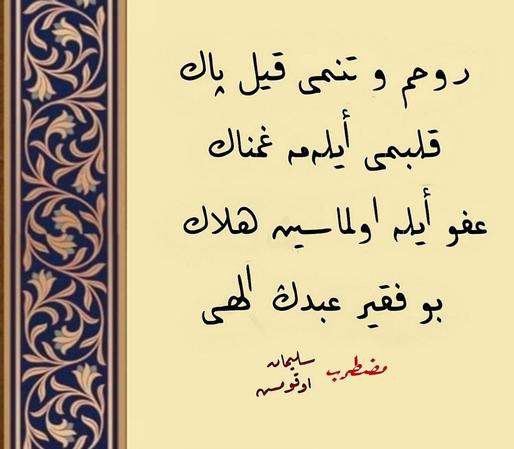 روحم و تنمى قيل پاك
قلبمى أيله‌مه غمناك
عفو أيله اولماسين هلاك
بو فقير عبدڭ الهى
مضطرب سليمان
اوقومس